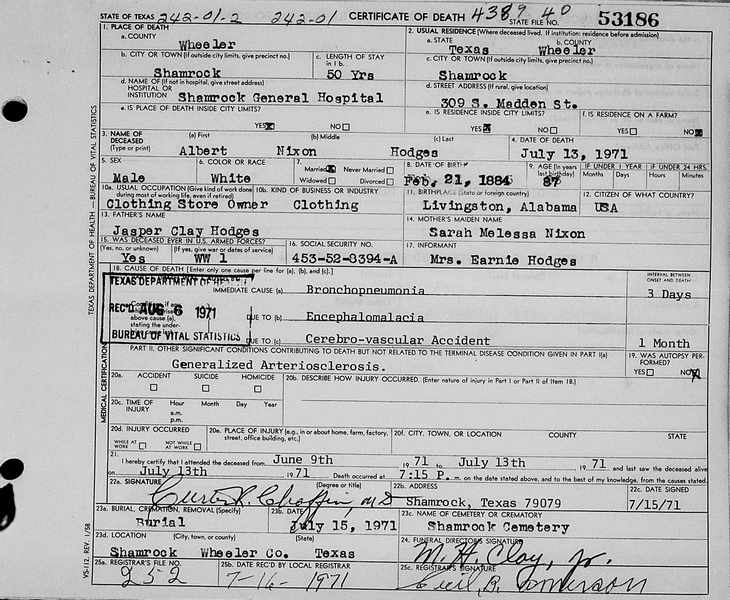 STATE OF TEXAS 242-01-2 242-01 CERTIFICATE OF DEATH 4389 40 STATE FILE NO. 53186
1. PLACE OF DEATH
a. COUNTY
Wheeler
2. USUAL RESIDENCE (Where deceased lived. If institution: residence before admission)
a. STATE b. COUNTY
Texas Wheeler
b. CITY OR TOWN (If outside city limits, give precinct no.)
Shamrock
c. LENGTH OF STAY in 1 b.
50 Yrs
c. CITY OR TOWN (If outside city limits, give precinct no.)
Shamrock
d. NAME OF (If not in hospital, give street address)
HOSPITAL OR
INSTITUTION Shamrock General Hospital
d. STREET ADDRESS (If rural, give location)
309 S. Madden St.
e. IS PLACE OF DEATH INSIDE CITY LIMITS?
YES X NO
e. IS RESIDENCE INSIDE CITY LIMITS?
YES X NO
f. IS RESIDENCE ON A FARM?
YES NO X
3. NAME OF DECEASED (Type or print)
(a) First (b) Middle (c) Last
Albert Nixon Hodges
4. DATE OF DEATH
July 13, 1971
5. SEX
Male
6. COLOR OR RACE
White
7. Married X Never Married
Widowed Divorced
8. DATE OF BIRTH
Feb. 21, 1884
9. AGE (In years last birthday)
87
IF UNDER 1 YEAR IF UNDER 24 HRS.
Months Days Hours Minutes
10a. USUAL OCCUPATION (Give kind of work done during most of working life, even if retired)
Clothing Store Owner
10b. KIND OF BUSINESS OR INDUSTRY
Clothing
11. BIRTHPLACE (State or foreign country)
Livingston, Alabama
12. CITIZEN OF WHAT COUNTRY?
USA
13. FATHER'S NAME
Jasper Clay Hodges
14. MOTHER'S MAIDEN NAME
Sarah Melessa Nixon
15. WAS DECEASED EVER IN U.S. ARMED FORCES?
(Yes, no, or unknown) (If yes, give war or dates of service)
Yes WW 1
16. SOCIAL SECURITY NO.
453-52-8394-A
17. INFORMANT
Mrs. Earnie Hodges
18. CAUSE OF DEATH [Enter only one cause per line for (a), (b), and (c).]
INTERVAL BETWEEN ONSET AND DEATH
TEXAS DEPARTMENT OF HEALTH
IMMEDIATE CAUSE (a) Bronchopneumonia
3 Days
REC'D AUG 6 1971
above cause (a),
stating the under-
DUE TO (b) Encephalomalacia
BUREAU OF VITAL STATISTICS
DUE TO (c) Cerebro-vascular Accident
1 Month
PART II. OTHER SIGNIFICANT CONDITIONS CONTRIBUTING TO DEATH BUT NOT RELATED TO THE TERMINAL DISEASE CONDITION GIVEN IN PART I(a)
Generalized Arteriosclerosis.
19. WAS AUTOPSY PERFORMED?
YES NO X
20a. ACCIDENT SUICIDE HOMICIDE
20b. DESCRIBE HOW INJURY OCCURRED. (Enter nature of injury in Part I or Part II of Item 18.)
20c. TIME OF INJURY
Hour Month Day Year
a.m.
p.m.
20d. INJURY OCCURRED
WHILE AT WORK NOT WHILE AT WORK
20e. PLACE OF INJURY (e.g., in or about home, farm, factory, street, office building, etc.)
20f. CITY, TOWN, OR LOCATION COUNTY STATE
21. I hereby certify that I attended the deceased from June 9th 1971 to July 13th 1971 and last saw the deceased alive
on July 13th 1971 Death occurred at 7:15 P. m. on the date stated above, and to the best of my knowledge, from the causes stated.
22a. SIGNATURE (Degree or title)
Curtis R. Chaffin, M D
22b. ADDRESS
Shamrock, Texas 79079
22c. DATE SIGNED
7/15/71
23a. BURIAL, CREMATION, REMOVAL (Specify)
Burial
23b. DATE
July 15, 1971
23c. NAME OF CEMETERY OR CREMATORY
Shamrock Cemetery
23d. LOCATION (City, town, or county) (State)
Shamrock Wheeler Co. Texas
24. FUNERAL DIRECTOR'S SIGNATURE
M. H. Clay, Jr.
25a. REGISTRAR'S FILE NO.
252
25b. DATE REC'D BY LOCAL REGISTRAR
7-16-1971
25c. REGISTRAR'S SIGNATURE
Cecil B.
TEXAS DEPARTMENT OF HEALTH — BUREAU OF VITAL STATISTICS
MEDICAL CERTIFICATION
VS-112, REV. 1/58